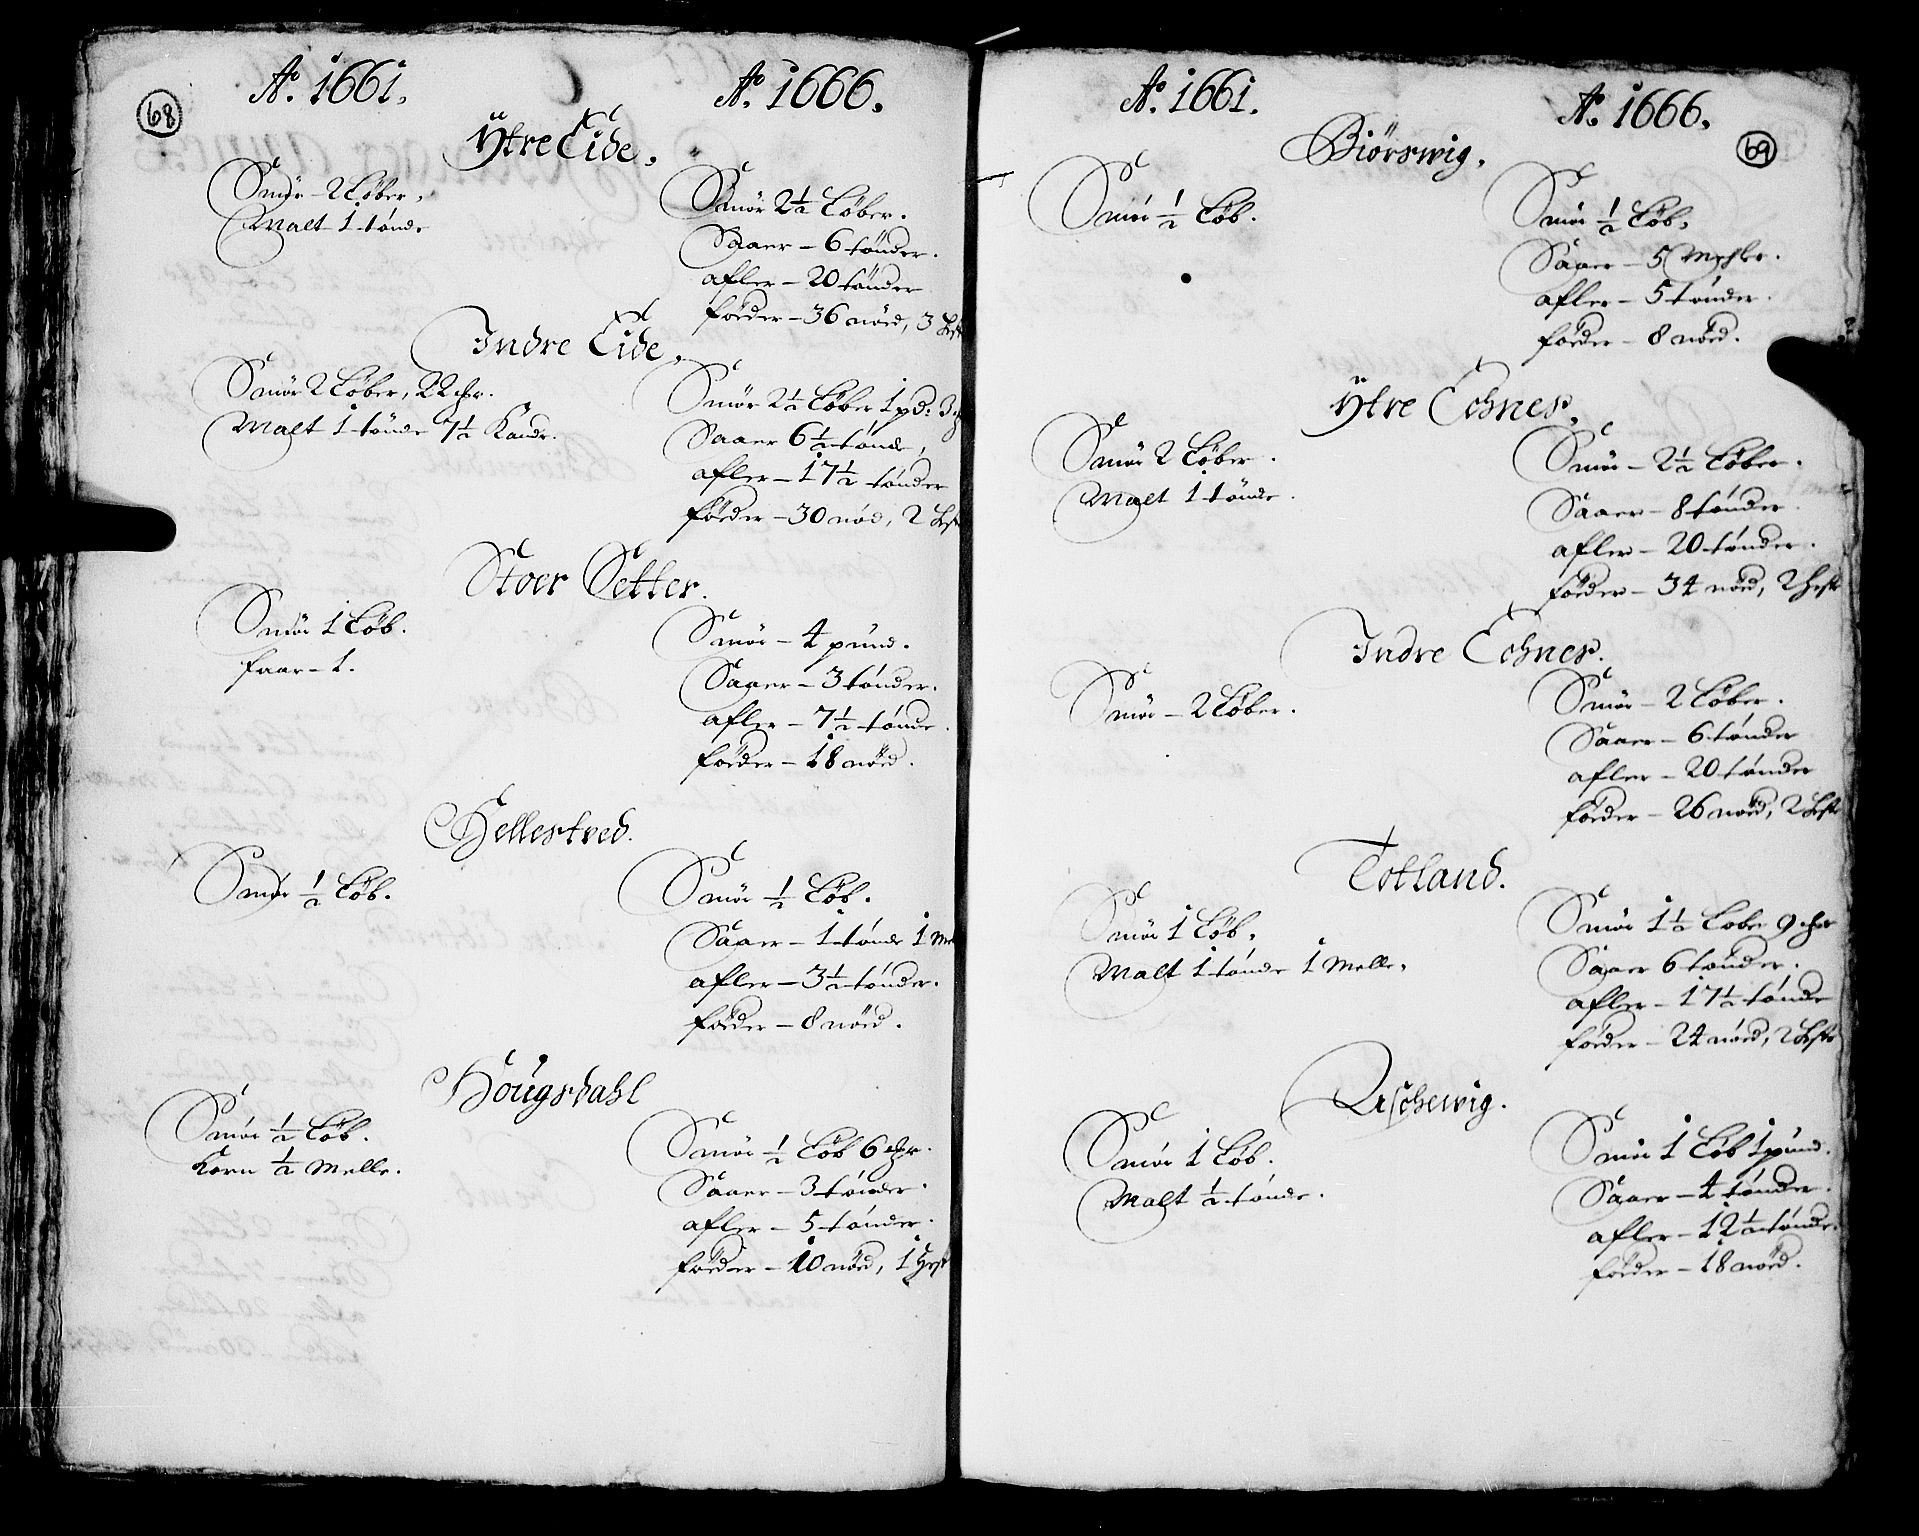 68
Aº. 1661.
Aº. 1666.
Ytre Eide.
Smör - 2 Löber.
Malt 1 tönde
Smör 2½ Löber.
Saaer - 6 tönder.
afler - 20 tönder
föeder - 36 nöed, 3 Hest
Indre Eide.
Smör 2 Löber, 22 ##.
Malt 1 tönde 7½ Kande.
Smör 2½ Löber 1 pd: 3
Saaer 6½ tönde,
afler - 17½ tönder
föeder - 30 nöed, 2 Hest
Stoer Setter.
Smör 1 Löb.
faar - 1.
Smör - 4 pund.
Saaer - 3 tönder.
afler - 7½ tönde.
föeder - 18 nöed.
Hellestved.
Smör ½ Löb.
Smör ½ Löb.
Saaer - 1 tönde 1 Me
afler - 3½ tönder.
föeder - 8 nöed.
Hougsdahl
Smör ½ Löb.
Korn ½ Melle.
Smör ½ Löb 6 ##.
Saaer - 3 tönder.
afler - 5 tönder.
föeder - 10 nöed, 1 Hest
69
Aº. 1661.
Aº. 1666.
Biörswig.
Smör ½ Löb.
Smör ½ Löb.
Saaer - 5 Mehler.
afler - 5 tönder.
föeder - 8 nöed.
Ytre Echnes.
Smör 2 Löber.
Malt 1 tönde.
Smör - 2½ Löber.
Saaer - 8 tönder.
afler - 20 tönder.
föeder - 34 nöed, 2 Hest
Indre Echnes.
Smör - 2 Löber.
Smör - 2 Löber.
Saaer - 6 tönder
afler - 20 tönder
föeder - 26 nöed, 2 Heste
Totland.
Smör 1 Löb.
Malt 1 tönde 1 Melle.
Smör 1½ Löber 9 ##
Saaer 6 tönder.
afler - 17½ tönde
föeder - 24 nöed, 2 Heste
Aschewig.
Smör 1 Löb.
Malt ½ tönde.
Smör 1 Löb 1 pund.
Saaer - 4 tönder.
afler - 12½ tönde.
föeder - 18 nöed.